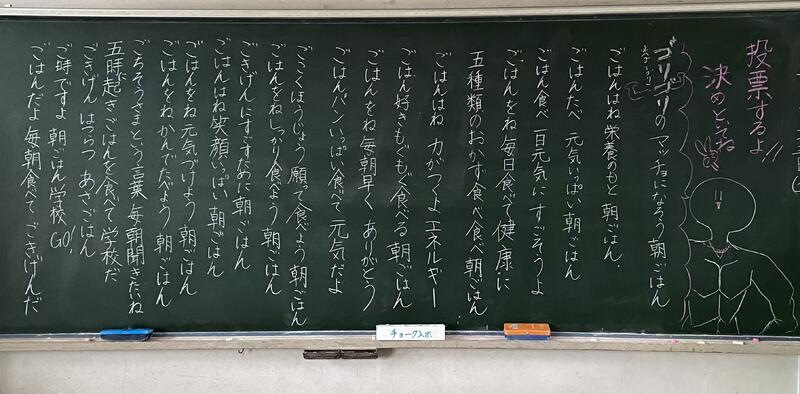 投票するよ!!
決めといてね
ゴリゴリのマッチョになろう朝ごはん
ごはんはね栄養のもと朝ごはん.
ごはんたべ 元気いっぱい朝ごはん
ごはん食べ 一日元気に すごそうよ
ごはんをね毎日食べて健康に
五種類のおかず食べ食べ朝ごはん
ごはんはね 力がつくよ エネルギー
ごはん好きもぐもぐ食べる 朝ごはん
ごはんをね 毎朝早く ありがとう
ごはんパンいっぱい食べて 元気だよ
ごうくほうじょう 願って食べよう 朝ごはん
ごはんをねしっかり食べよう 朝ごはん
ごきげんにすごすために朝ごはん
ごはんはね笑顔いっぱい 朝ごはん
ごはんをね 元気づけよう 朝ごはん
ごはんをねかんでたべよう 朝ごはん
ごちそうさまという言葉 毎朝聞きたいね
五時起きごはんを食べて 学校だ
ごきげん はつらつ あさごはん
ご時ですよ 朝ごはん学校GO!
ごはんだよ 毎朝食べて ごきげんだ
チョーク入れ